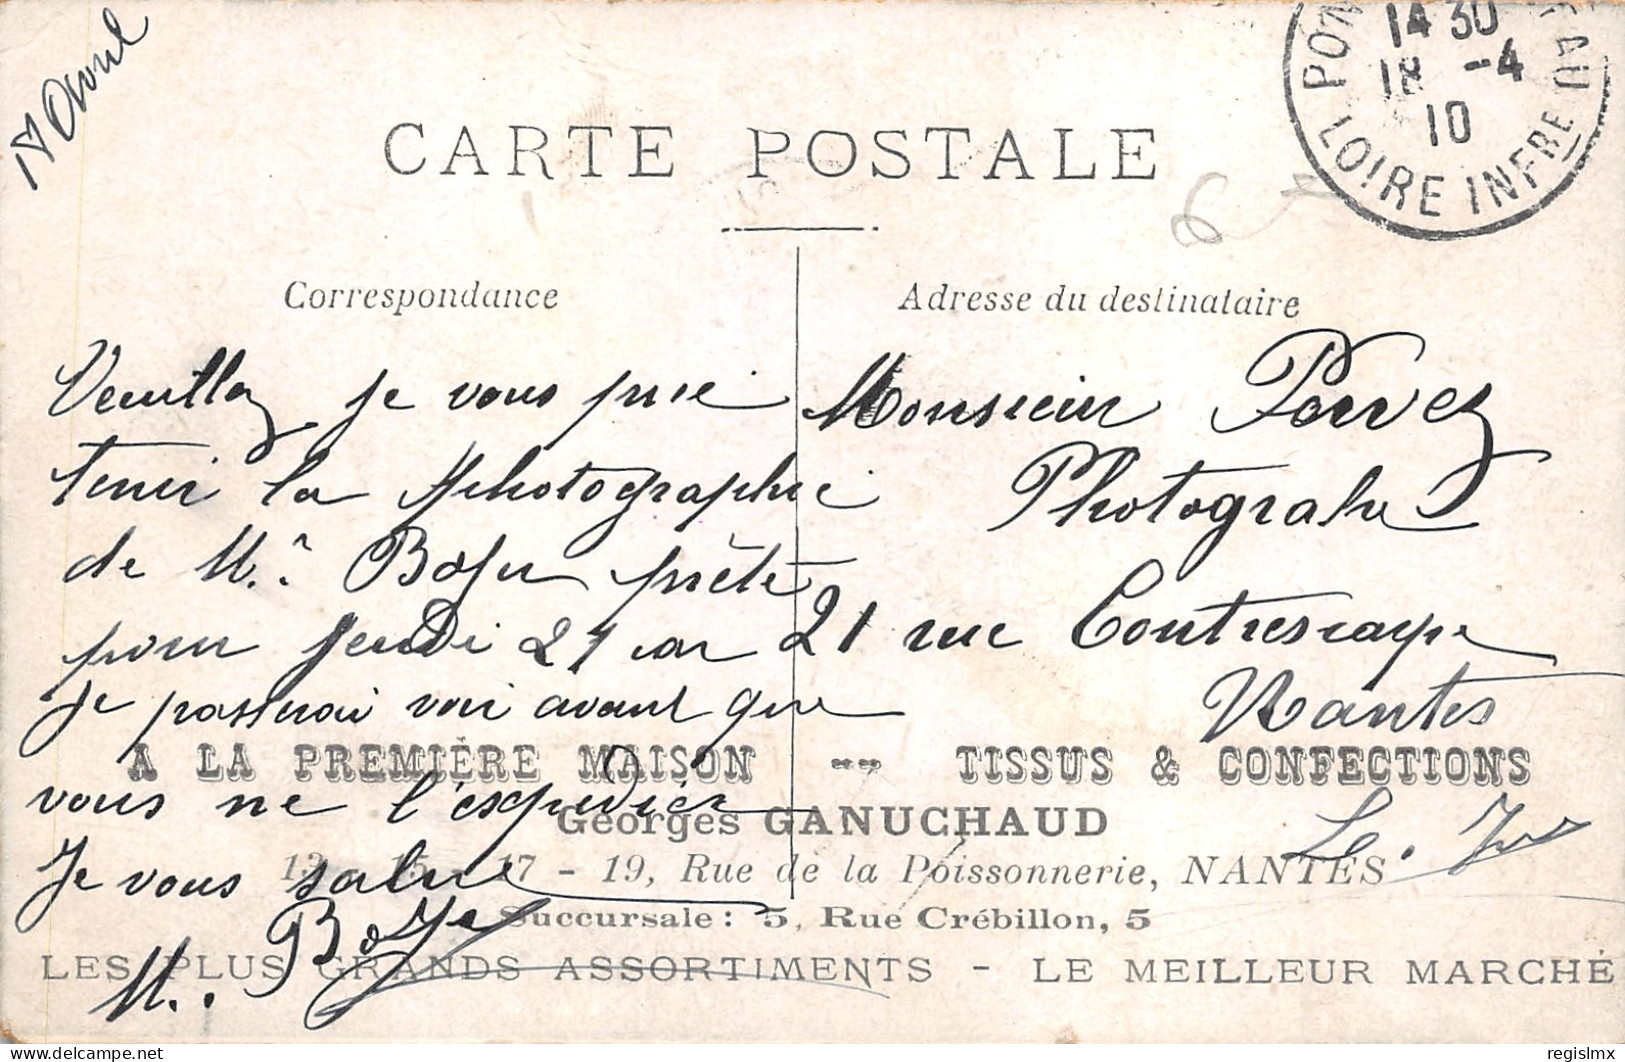 17 Avril
PON TAU
14 30
18 -4
10
LOIRE INFRE
CARTE POSTALE
6
Correspondance
Adresse du destinataire
Veuillez je vous prie
tenir la photographie
de Mr prête
pour jeudi 21 car
Je passerai voir avant que
vous ne l'expédier
Je vous salue
M.
Monsieur
Photograhe
21 rue Contrescarpe
Nantes
L. Ire
A LA PREMIÈRE MAISON -- TISSUS & CONFECTIONS
Georges GANUCHAUD
13 - 15 - 17 - 19, Rue de la Poissonnerie, NANTES
Succursale : 5, Rue Crébillon, 5
LES PLUS GRANDS ASSORTIMENTS - LE MEILLEUR MARCHÉ
regislmx